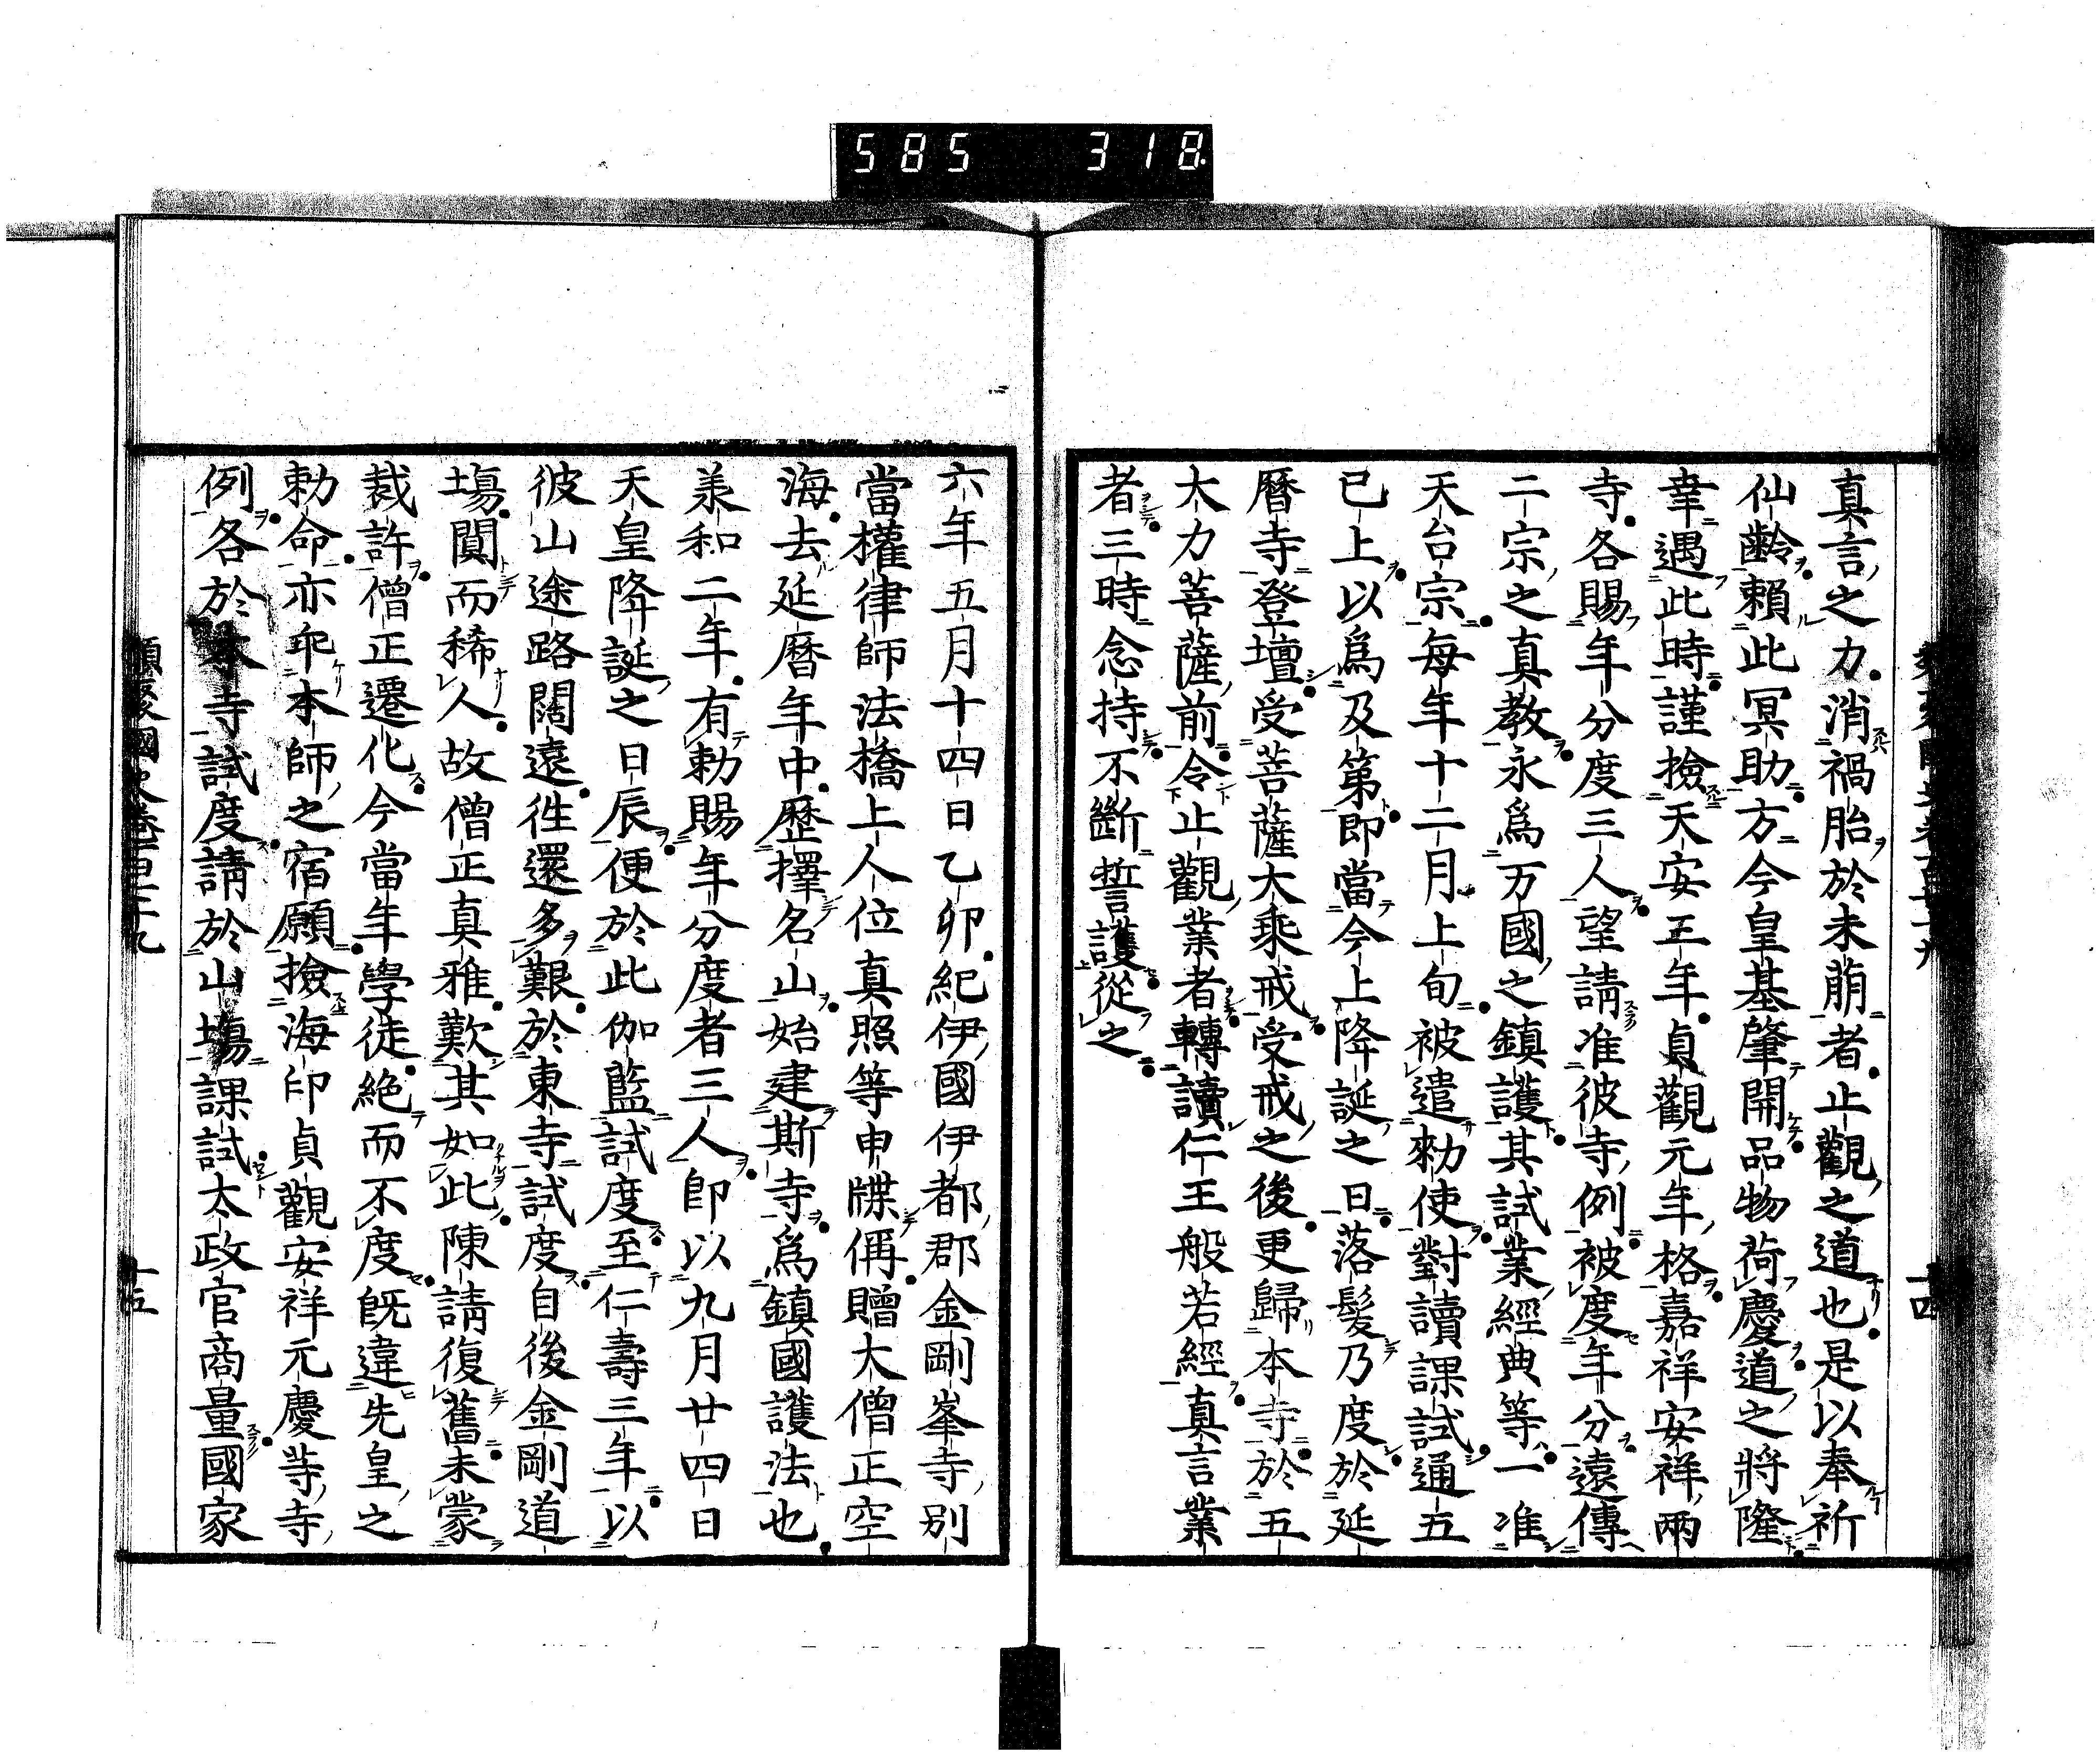 585 318
真言之力消禍胎於未萠者止觀之道也是以奉祈
仙齡賴此冥助方今皇基肇開品物荷慶道之將隆
幸遇此時謹撿天安三年貞觀元年格嘉祥安祥兩
寺各賜年分度三人望請准彼寺例被度年分遠傳
二宗之真教永爲万國之鎮護其試業經典等一准
天台宗每年十二月上旬被遣勑使對讀課試通五
已上以爲及第即當今上降誕之日落髮乃度於延
曆寺登壇受菩薩大乘戒受戒之後更歸本寺於五
大力菩薩前令止觀業者轉讀仁王般若經真言業
者三時念持不斷誓護從之
十四
六年五月十四日乙卯紀伊國伊都郡金剛峯寺別
當權律師法橋上人位真照等申牒偁贈大僧正空
海去延曆年中歷擇名山始建斯寺爲鎮國護法也
羕和二年有勅賜年分度者三人卽以九月廿四日
天皇降誕之日辰便於此伽藍試度至仁壽三年以
彼山途路闊遠徃還多艱於東寺試度自後金剛道
塲闃而稀人故僧正真雅歎其如此陳請復舊未蒙
裁許僧正遷化今當年學徒絕而不度旣違先皇之
勅命亦乖本師之宿願撿海印貞觀安祥元慶等寺
例各於本寺試度請於山塲課試太政官商量國家
類聚國史卷百七十九
十五